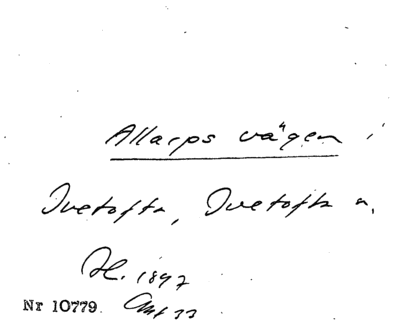 Allarps vägen
Ivetofta, Ivetofta s.
H. 1897
Nr 10779.